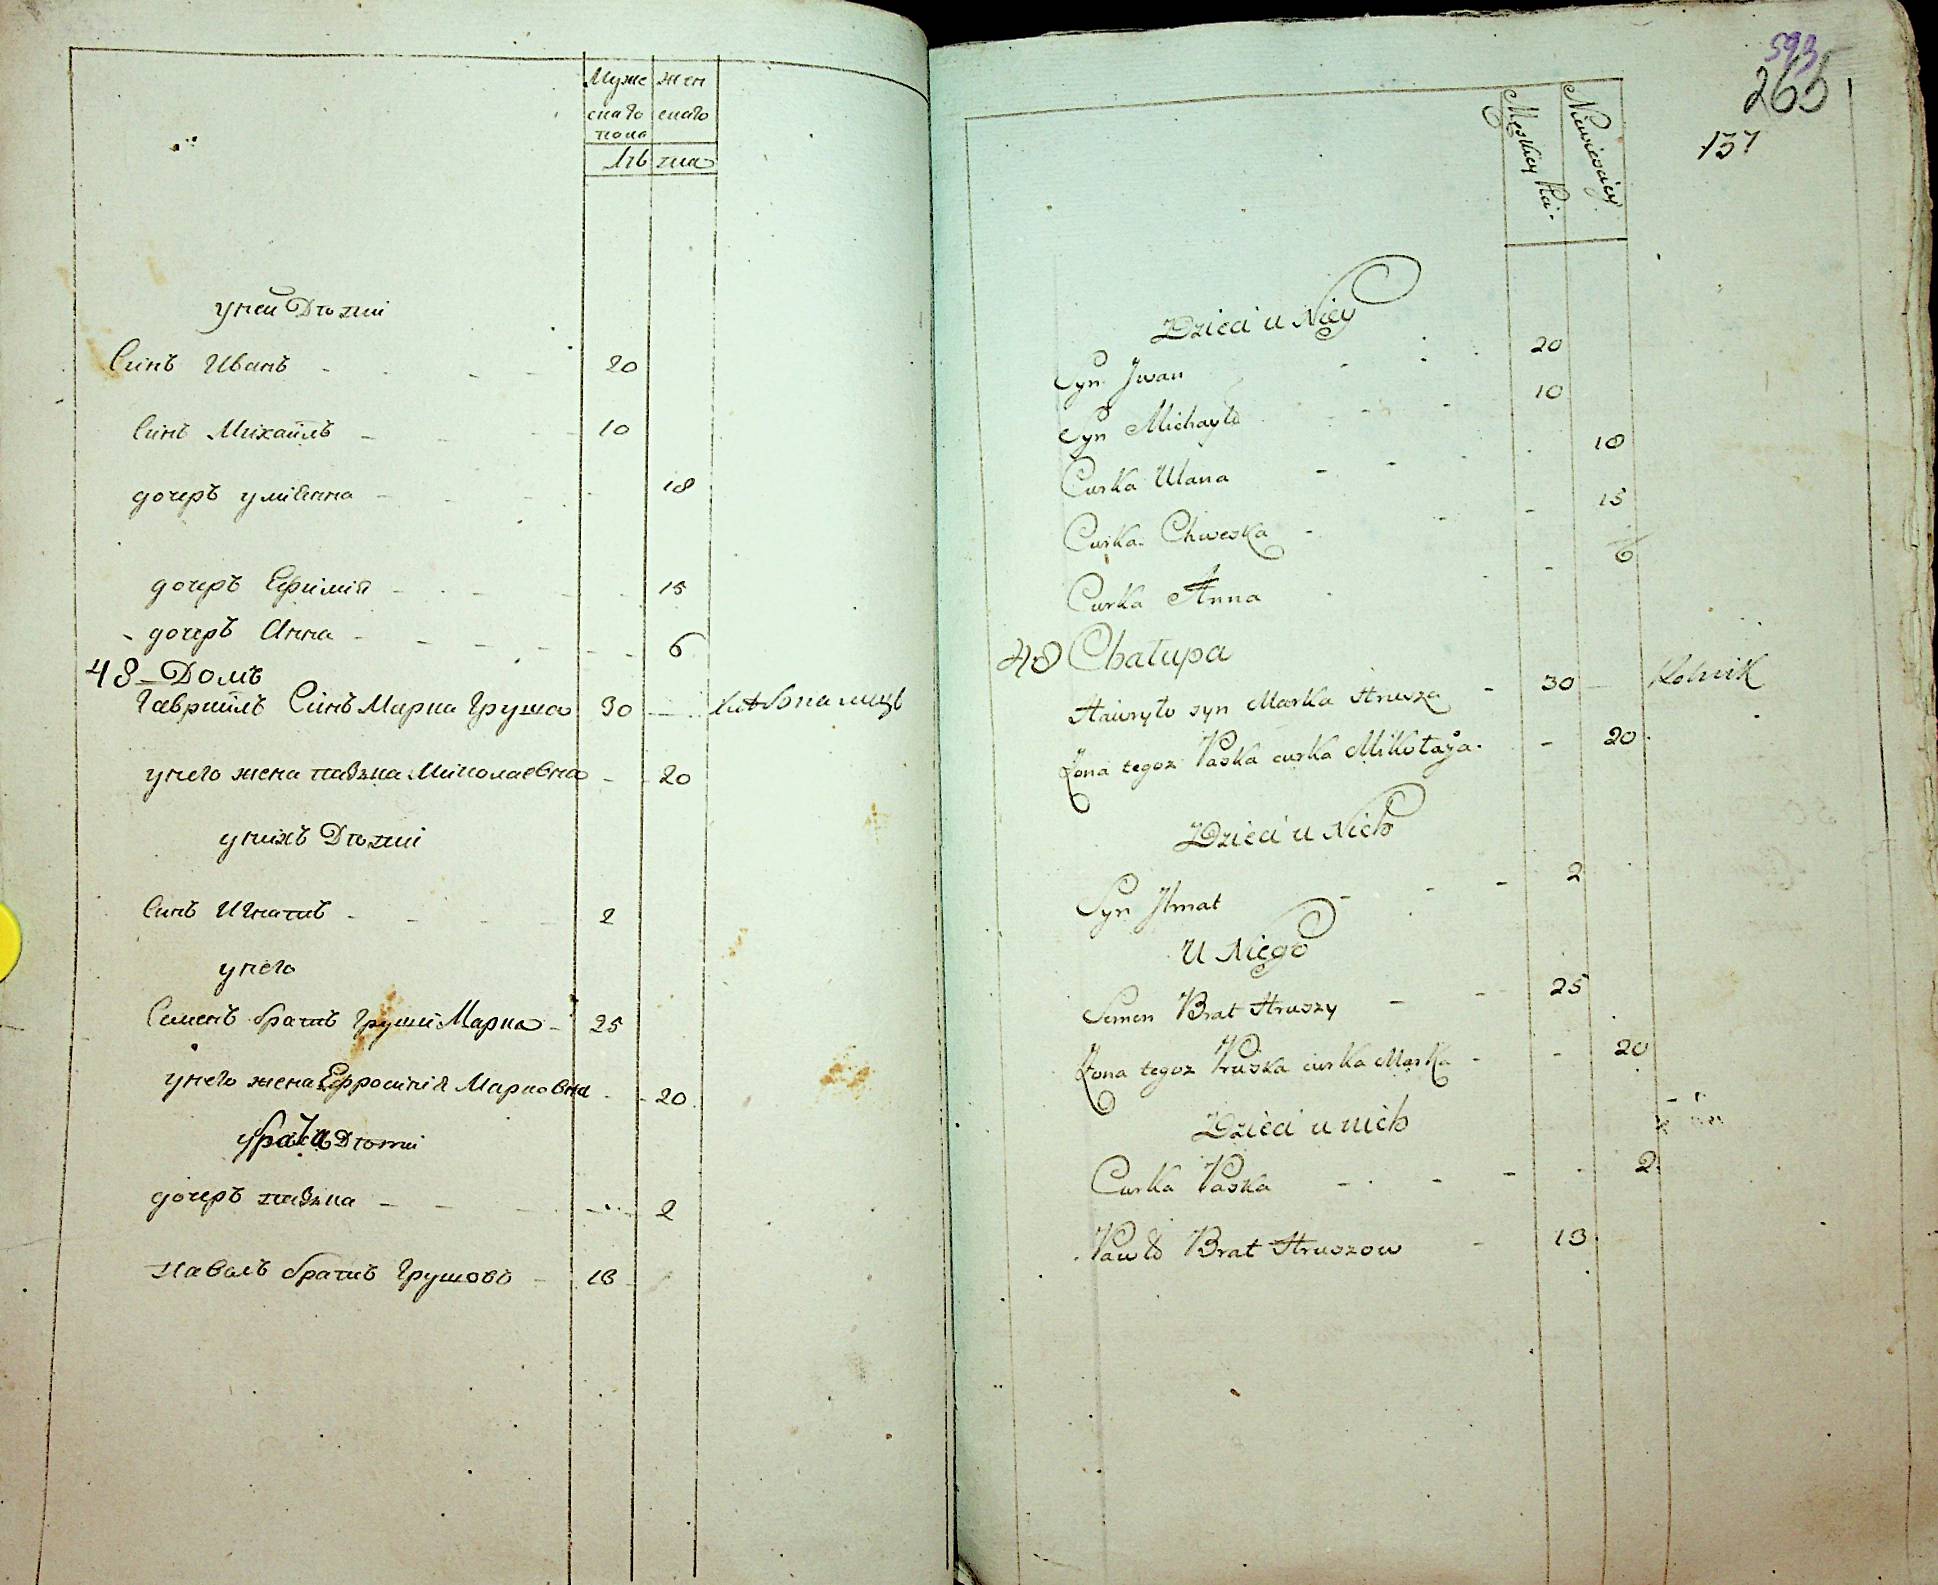 Муже жен
скаго скаго
пола
Лѣ та
уней Дѣти
Синъ Иванъ 20
Синъ Михаилъ 10
дочеръ улияна 18
дочеръ Ефимія 15
дочеръ Анна 6
48 Домъ
Гавриилъ Синъ Марка Груша 30 хлѣбопашецъ
унего жена пазька Миколаевна 20
унихъ Дѣти
Синъ Игнатъ 2
унего
Семенъ братъ Груши Марка 25
унего жена Ефросинія Марковна 20
Дѣти
дочеръ пазька 2
Павелъ братъ Грушовъ 13
593
265
137
Męskiey Płci Niewieściey
Dzieci u Niey
Syn Jwan 20
Syn Michayło 10
Curka Ulana 18
Curka Chweska 15
Curka Anna 6
48 Chałupa
Hawryło syn Marka Hrusza 30 Rolnik
Żona tegoż Paska curka Mikołaja 20
Dzieci u Nich
Syn Ihnat 2
U Niego
Semen Brat Hruszy 25
Żona tegoż Pruska curka Marka 20
Dzieci u nich
Curka Paska 2
Pawło Brat Hruszow 13